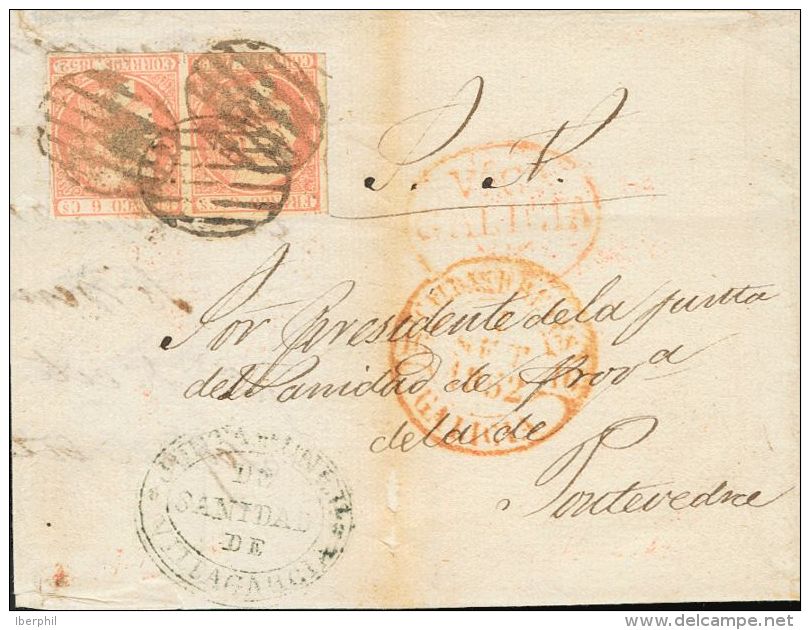 CORREOS 1852
FRANCO 6 Cs
S. N.
Vigo
GALICIA
Sor Presidente de la junta
de Sanidad de Prova
de la de
Pontevedra
SET
1852
JUNTA MUNCIPL
DE
SANIDAD
DE
VILLAGARCIA
Iberphil
www.delcampe.net